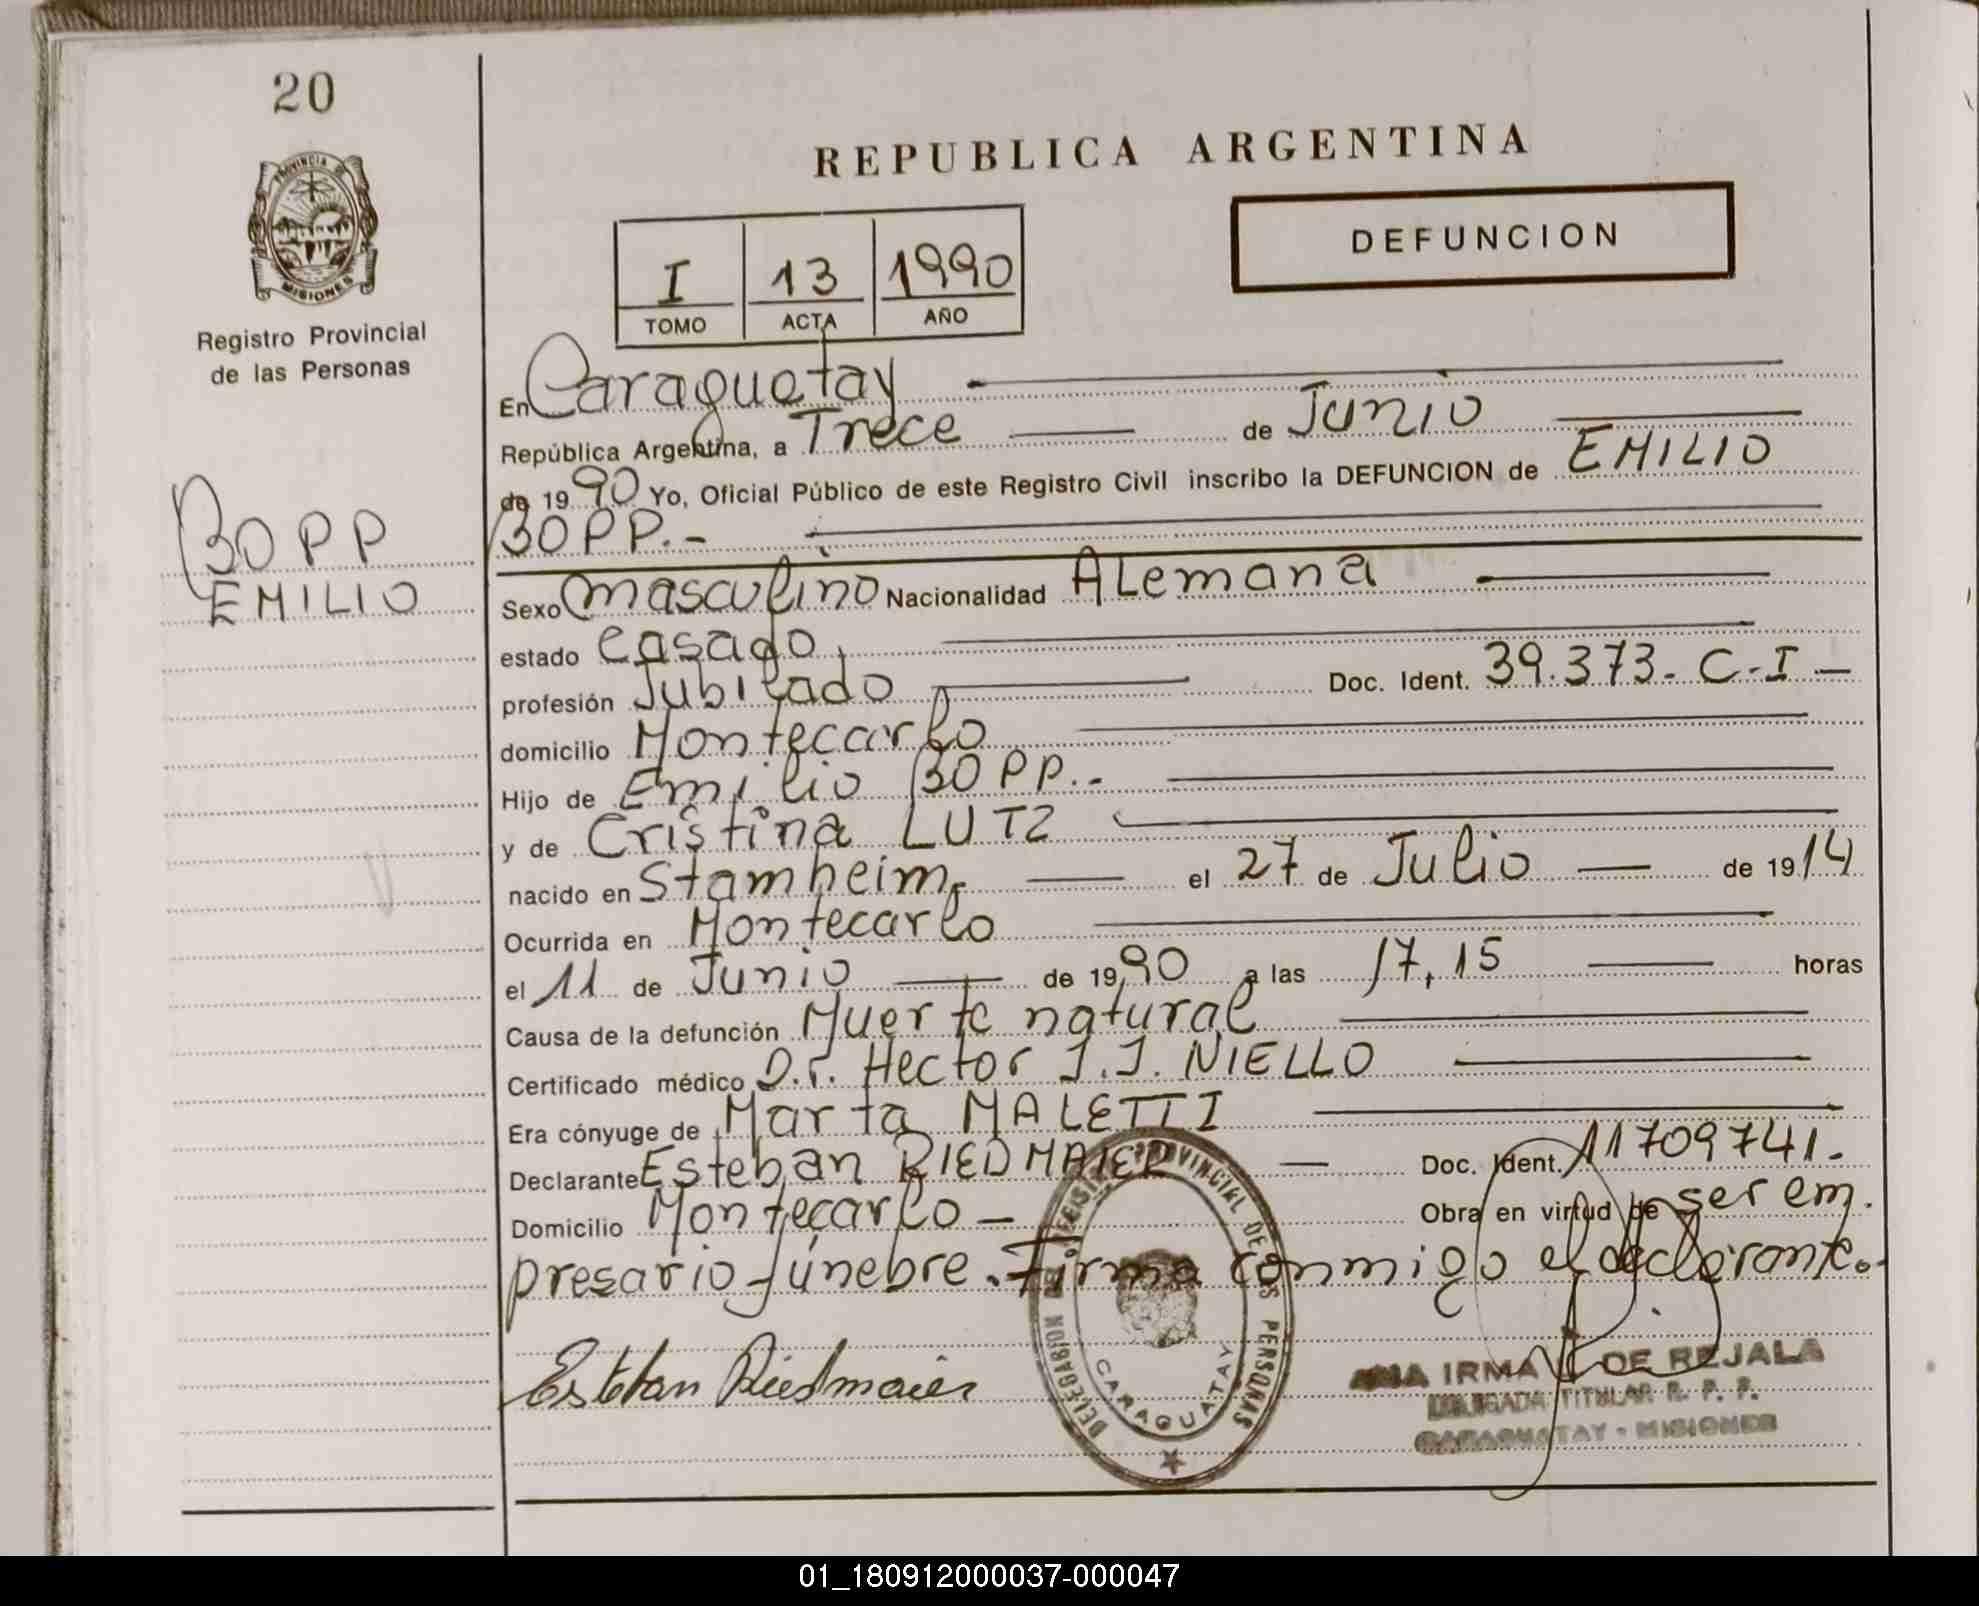 20
PROVINCIA DE
MISIONES
Registro Provincial
de las Personas
BOPP
EMILIO
REPUBLICA ARGENTINA
DEFUNCION
I 13 1990
TOMO ACTA AÑO
En Caraguatay
República Argentina, a Trece de Junio
de 1990 Yo, Oficial Público de este Registro Civil inscribo la DEFUNCION de EMILIO
BOPP.-
Sexo Masculino Nacionalidad Alemana
estado Casado
profesión Jubilado Doc. Ident. 39.373.- C-I -
domicilio Montecarlo
Hijo de Emilio BOPP.-
y de Cristina LUTZ
nacido en Stamheim el 27 de Julio de 1914
Ocurrida en Montecarlo
el 11 de Junio de 1990 a las 17,15 horas
Causa de la defunción Muerte natural
Certificado médico D.r. Hector J.J. NIELLO
Era cónyuge de Marta MALETTI
Declarante Esteban RIEDMAIER Doc. Ident. 11709741.
Domicilio Montecarlo - Obra en virtud de ser em.
presario fúnebre. Firma conmigo el declarante.
Esteban Riedmaier
DELEGACION DEL REGISTRO PROVINCIAL DE LAS PERSONAS
CARAGUATAY
ANA IRMA DE REJALA
DELEGADA TITULAR R. P. P.
CARAGUATAY - MISIONES
01_180912000037-000047